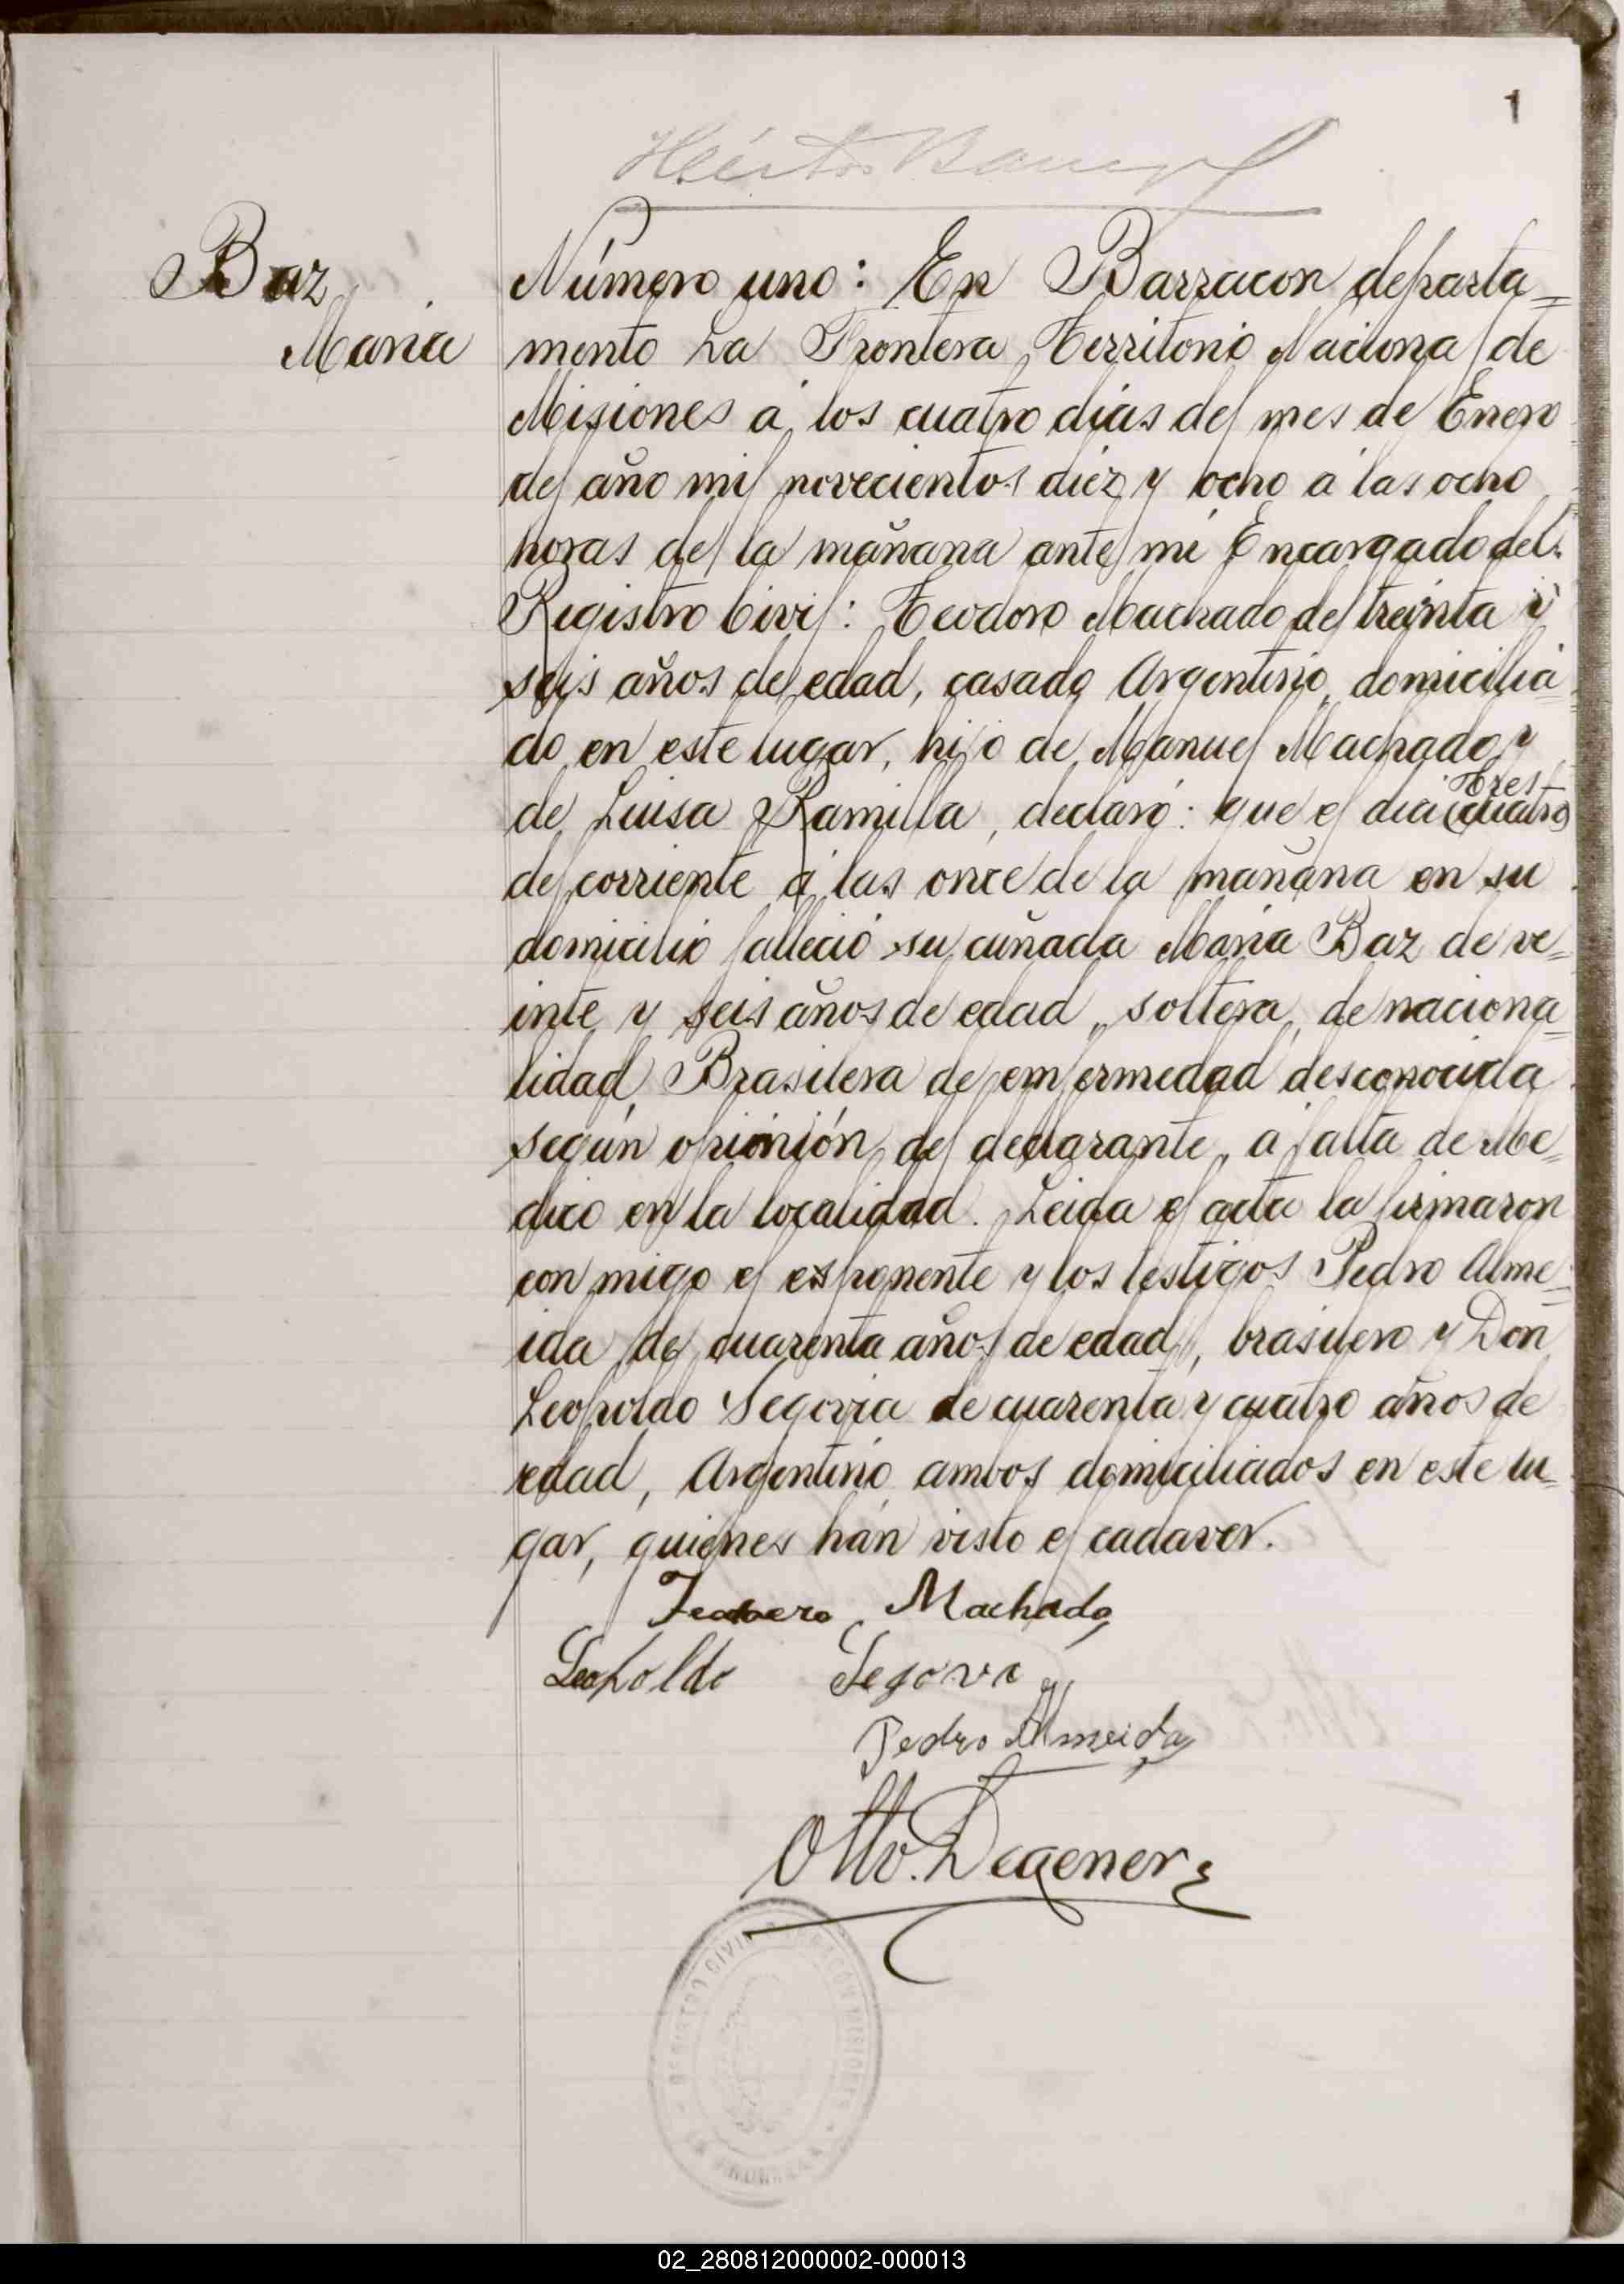 1
Baz
Maria
Número uno: En Barracon departa=
mento La Frontera, Territorio Nacional de
Misiones á los cuatro dias del mes de Enero
del año mil novecientos diez y ocho á las ocho
horas de la mañana ante mi Encargado del
Registro Civil: Teodoro Machado de treinta y
seis años de edad, casado Argentino, domicilia=
do en este lugar, hijo de Manuel Machado y
tres
de Luisa Ramilla, declaró: que el dia (cuatro)
del corriente á las once de la mañana en su
domicilio falleció su cuñada Maria Baz de ve=
inte y seis años de edad, soltera, de naciona=
lidad Brasilera de emfermedad desconocida
según opinión del declarante, a falta de Me=
dico en la localidad. Leida el acta la firmaron
con migo el exponente y los testigos Pedro Alme=
ida de cuarenta años de edad, brasilero y Don
Leopoldo Segovia de cuarenta y cuatro años de
edad, Argentino ambos domiciliados en este lu=
gar, quienes hán visto el cadaver.
Machado
Leopoldo Segovia
Pedro Almeida
Otto Degener
REGISTRO CIVIL
MISIONES
02_280812000002-000013